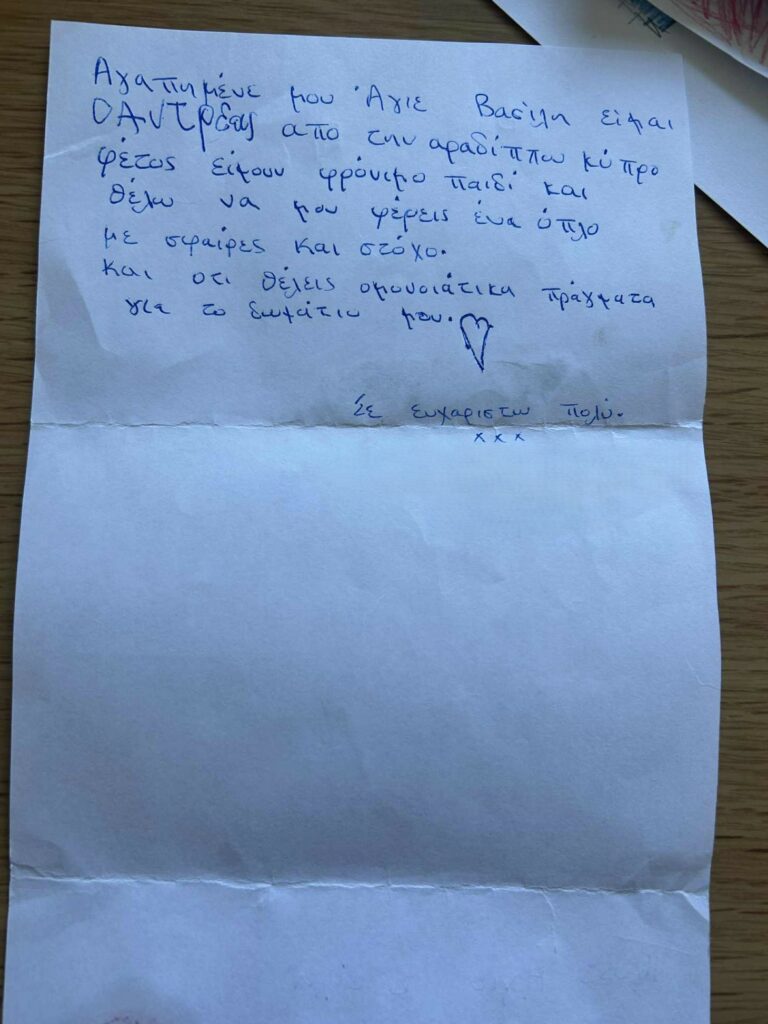 Αγαπημένε μου Άγιε Βασίλη είμαι
Ο Αντρέας απο την αραδίππου κύπρο
φέτος είμουν φρόνιμο παιδί και
θέλω να μου φέρεις ένα όπλο
με σφαίρες και στόχο.
και οτι θέλεις ομουσιάτικα πράγματα
για το δωμάτιο μου.
Σε ευχαριστω πολύ.
x x x